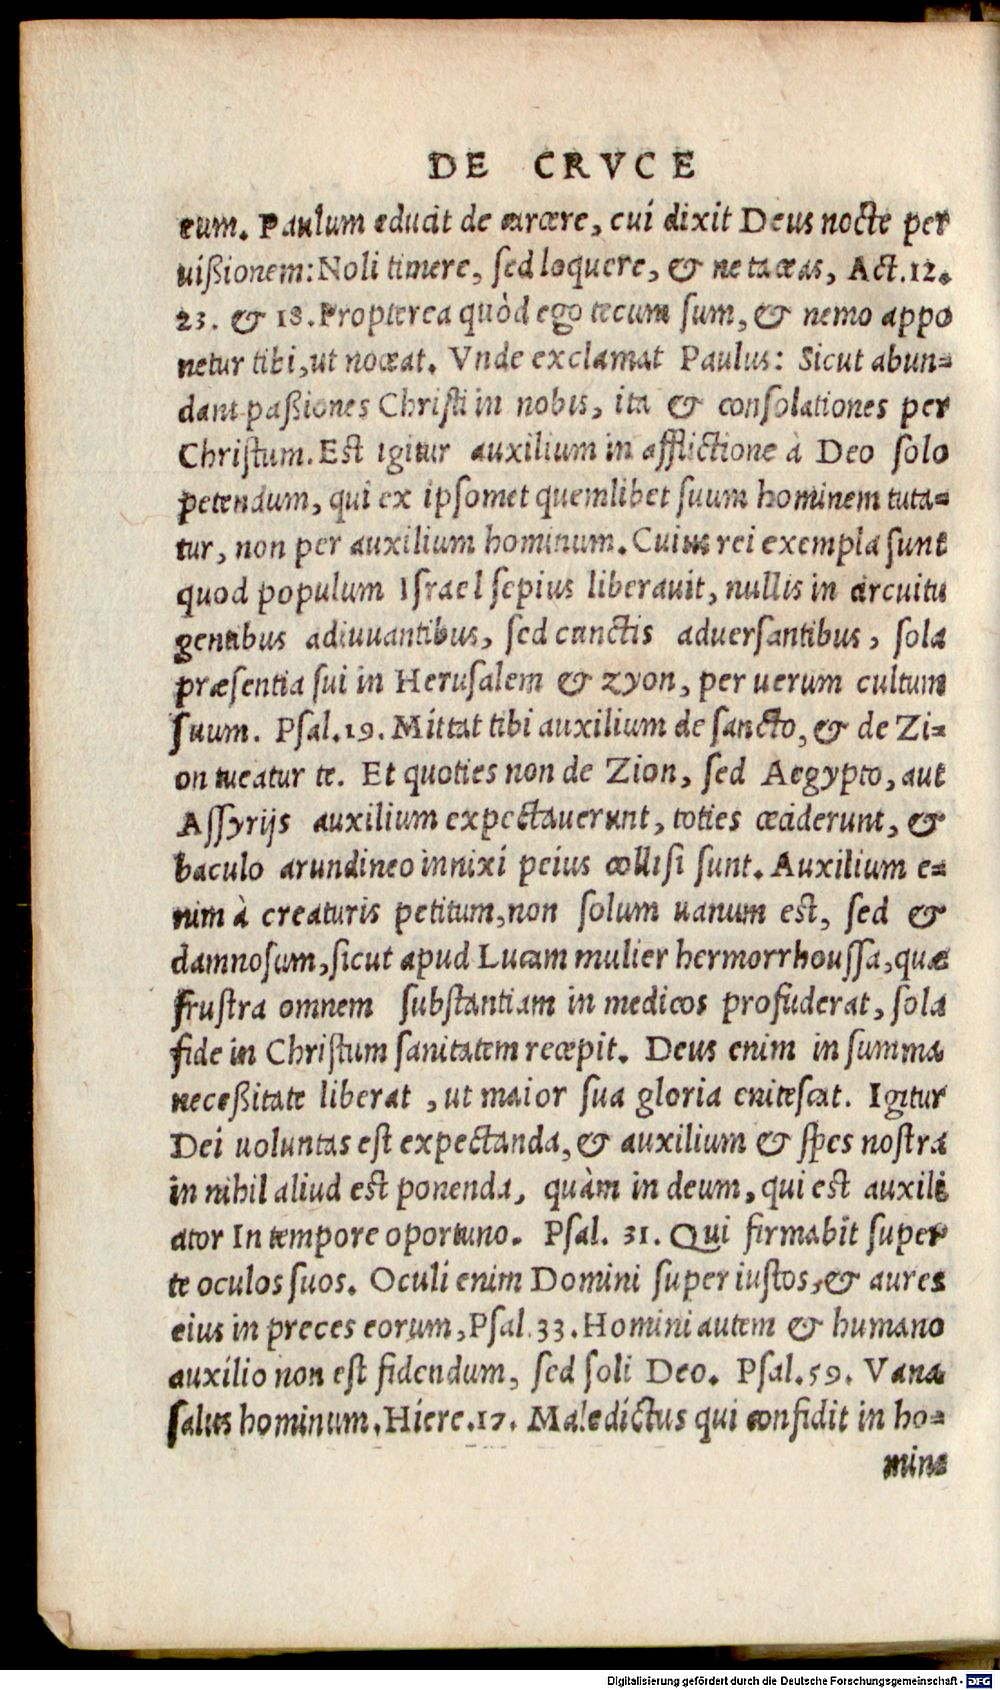 DE CRVCE
eum. Paulum educit de carcere, cui dixit Deus nocte per
uißionem: Noli timere, sed loquere, & ne taceas, Act. 12.
23. & 18. Propterea quòd ego tecum sum, & nemo appo
netur tibi, ut noceat. Vnde exclamat Paulus: Sicut abun-
dant paßiones Christi in nobis, ita & consolationes per
Christum. Est igitur auxilium in afflictione à Deo solo
petendum, qui ex ipsomet quemlibet suum hominem tuta-
tur, non per auxilium hominum. Cuius rei exempla sunt
quod populum Israel sepius liberauit, nullis in circuitu
gentibus adiuuantibus, sed cunctis aduersantibus, sola
præsentia sui in Herusalem & zyon, per uerum cultum
suum. Psal. 19. Mittat tibi auxilium de sancto, & de Zi-
on tueatur te. Et quoties non de Zion, sed Aegypto, aut
Assyrijs auxilium expectauerunt, toties ceciderunt, &
baculo arundineo innixi peius collisi sunt. Auxilium e-
nim à creaturis petitum, non solum uanum est, sed &
damnosum, sicut apud Lucam mulier hermorrhoussa, quæ
frustra omnem substantiam in medicos profuderat, sola
fide in Christum sanitatem recepit. Deus enim in summa
neceßitate liberat , ut maior sua gloria enitescat. Igitur
Dei uoluntas est expectanda, & auxilium & spes nostra
in nihil aliud est ponenda, quàm in deum, qui est auxili
ator In tempore oportuno. Psal. 31. Qui firmabit super
te oculos suos. Oculi enim Domini super iustos, & aures
eius in preces eorum, Psal. 33. Homini autem & humano
auxilio non est fidendum, sed soli Deo. Psal. 59. Vana
salus hominum. Hiere. 17. Maledictus qui confidit in ho-
mine
Digitalisierung gefördert durch die Deutsche Forschungsgemeinschaft - DFG